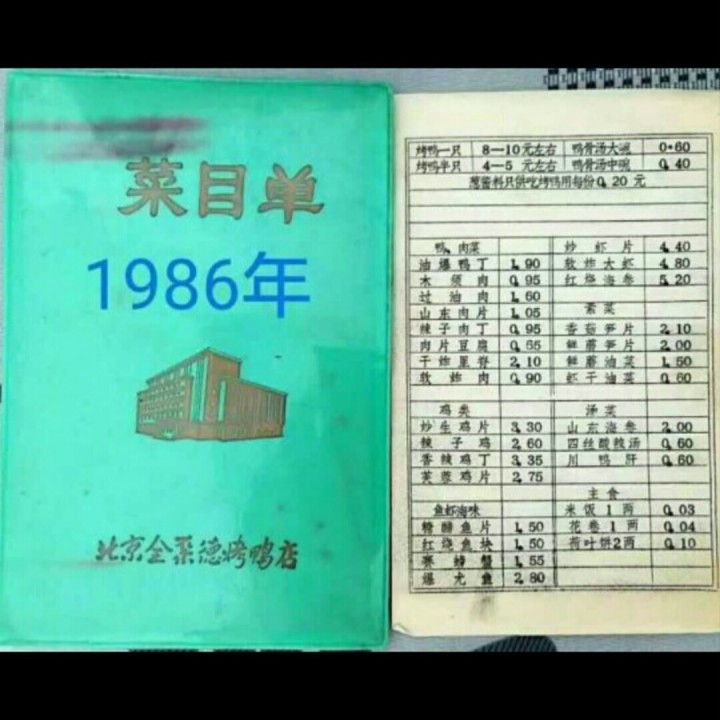 菜目单
1986年
北京全聚德烤鸭店
烤鸭一只 8—10元左右 鸭骨汤大碗 0.60
烤鸭半只 4—5元左右 鸭骨汤中碗 0.40
葱酱料只供吃烤鸭用每份0.20元
鸭、肉菜
油爆鸭丁 1.90
木须肉 0.95
过油肉 1.60
山东肉片 1.05
辣子肉丁 0.95
肉片豆腐 0.65
干炸里脊 2.10
软炸肉 0.90
鸡类
炒生鸡片 3.30
辣子鸡 2.60
香辣鸡丁 3.35
芙蓉鸡片 2.75
鱼虾海味
糟醋鱼片 1.50
红烧鱼块 1.50
赛螃蟹 1.55
爆尤鱼 2.80
炒虾片 4.40
软炸大虾 4.80
红烧海参 5.20
素菜
香菇笋片 2.10
鲜蘑笋片 2.00
鲜蘑油菜 1.50
虾干油菜 0.60
汤菜
山东海参 2.00
四丝酸辣汤 0.60
川鸭肝 0.60
主食
米饭1两 0.03
花卷1两 0.04
荷叶饼2两 0.10